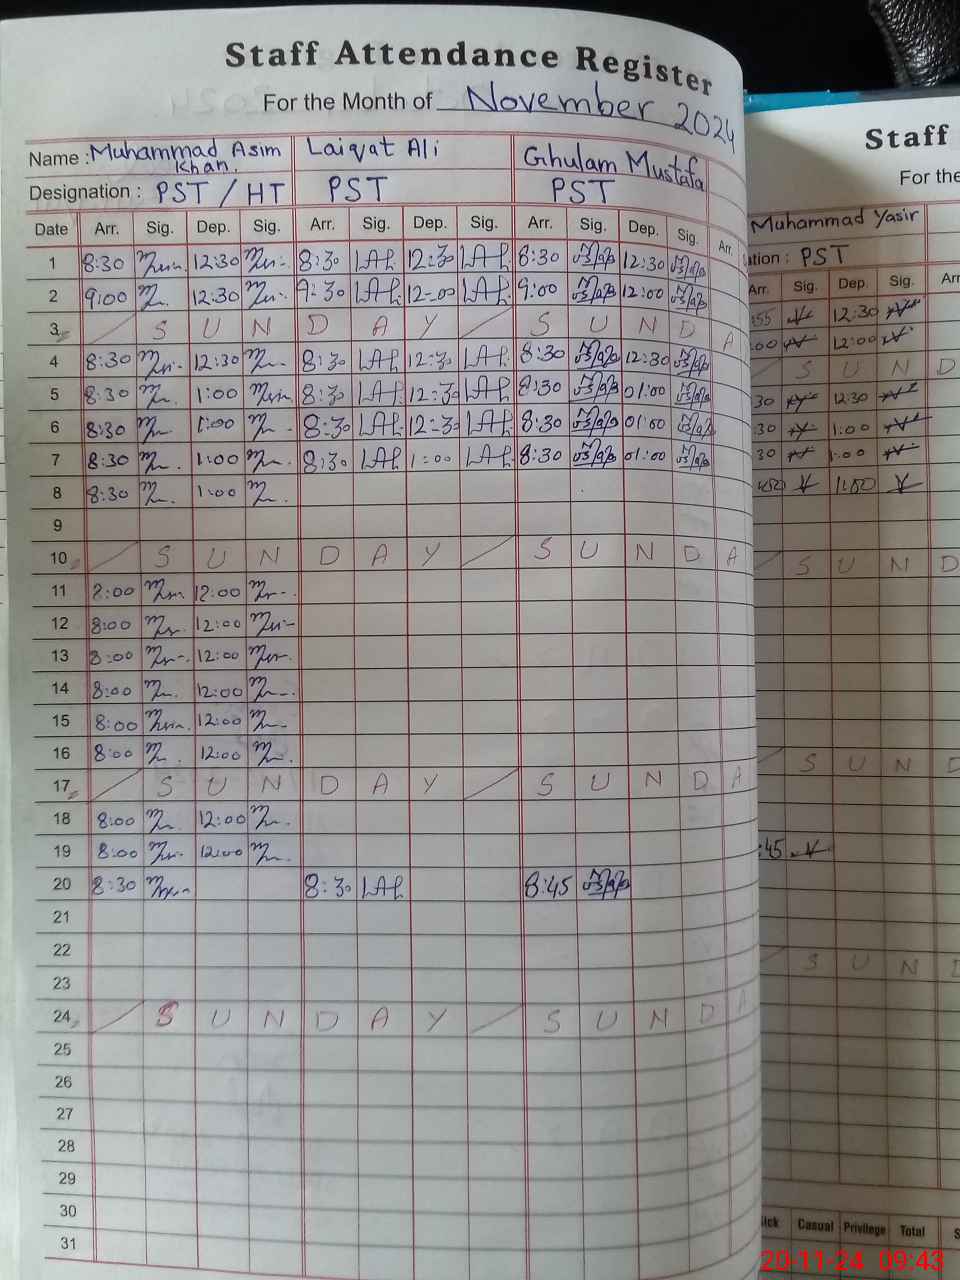 Staff Attendance Register
For the Month of November 2024
Name : Muhammad Asim Khan. Laiqat Ali Ghulam Mustafa
Designation : PST / HT PST PST
Date Arr. Sig. Dep. Sig. Arr. Sig. Dep. Sig. Arr. Sig. Dep. Sig. Arr.
1 8:30 12:30 8:30 LAL 12:30 LAL 8:30 12:30
2 9:00 12:30 9:30 LAL 12:00 LAL 9:00 12:00
3 S U N D A Y S U N D A
4 8:30 12:30 8:30 LAL 12:30 LAL 8:30 12:30
5 8:30 1:00 8:30 LAL 12:30 LAL 8:30 01:00
6 8:30 1:00 8:30 LAL 12:30 LAL 8:30 01:00
7 8:30 1:00 8:30 LAL 1:00 LAL 8:30 01:00
8 8:30 1:00
9
10 S U N D A Y S U N D A
11 8:00 12:00
12 8:00 12:00
13 8:00 12:00
14 8:00 12:00
15 8:00 12:00
16 8:00 12:00
17 S U N D A Y S U N D A
18 8:00 12:00
19 8:00 12:00
20 8:30 8:30 LAL 8:45
21
22
23
24 S U N D A Y S U N D A
25
26
27
28
29
30
31
Staff
For the
Muhammad Yasir
ation : PST
Arr. Sig. Dep. Sig. Arr
:55 12:30
:00 12:00
S U N D
30 12:30
30 1:00
30 1:00
1:00
S U N D
S U N D
:45
S U N D
ick Casual Privilege Total S
20-11-24 09:43